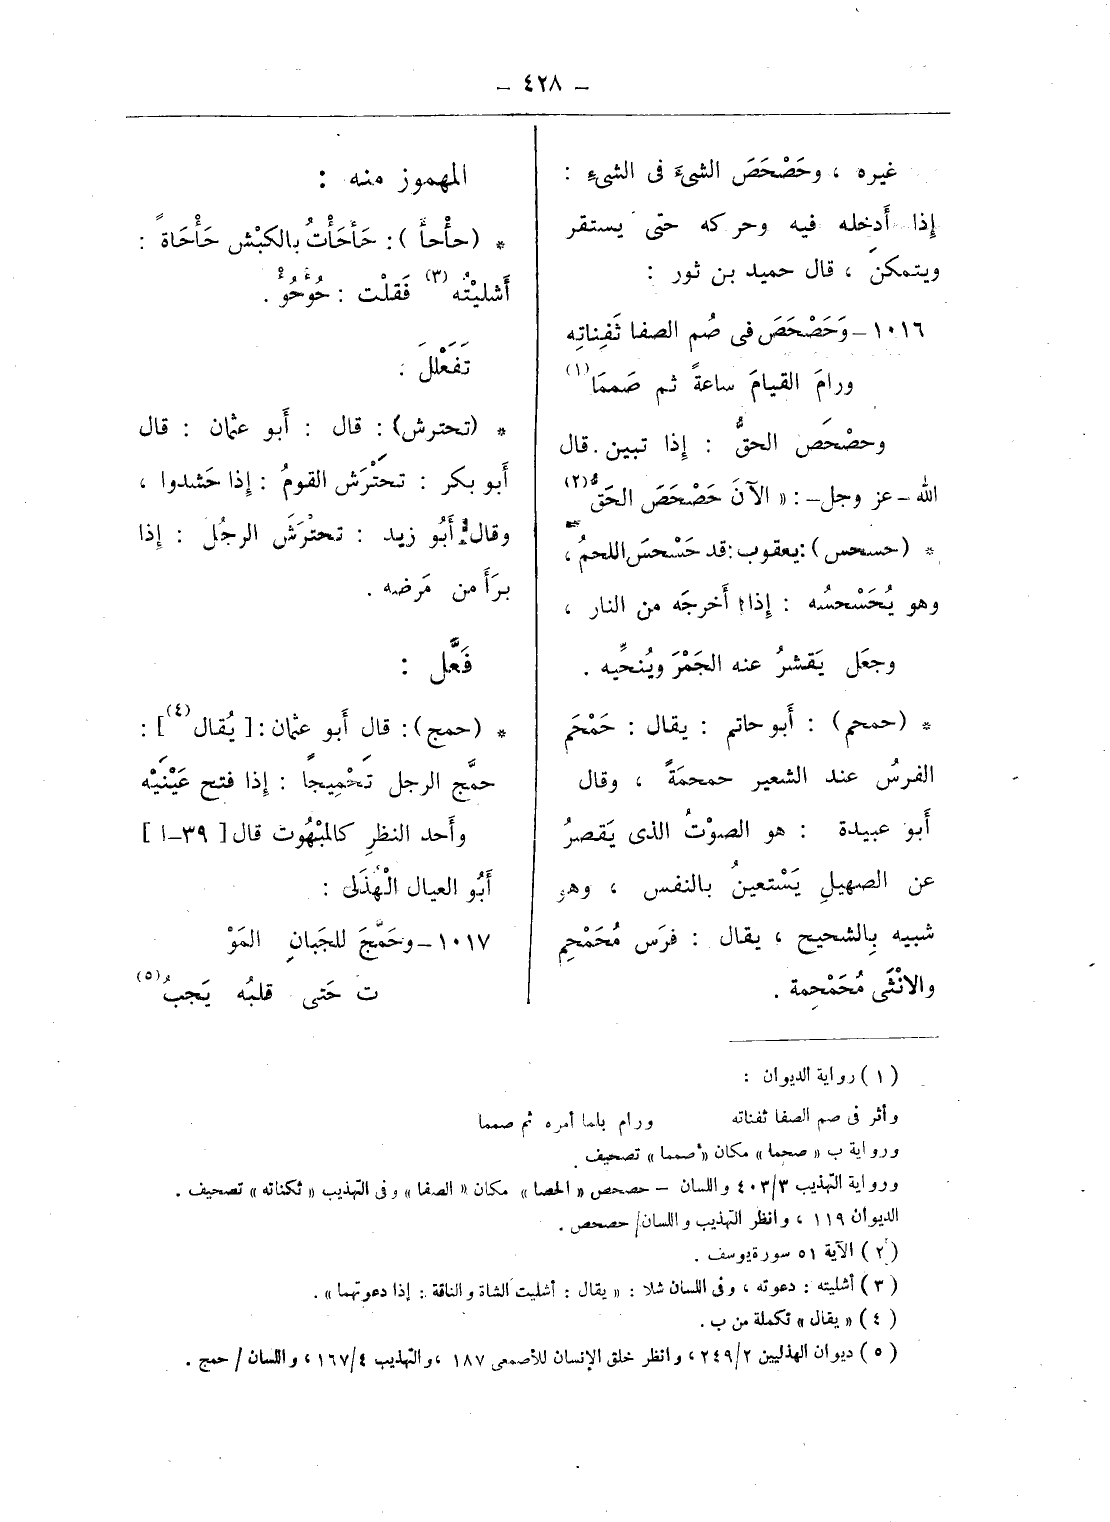 – ٤٢٨ –
غيره ، وحَصْحَصَ الشىءَ فى الشىءِ :
إذا أَدخله فيه وحركه حتى يستقر
ويتمكن ، قال حميد بن ثور :
١٠١٦ – وَحَصْحَصَ فى صُم الصفا ثَفِناتِه
ورامَ القيامَ ساعةً ثم صَممَا (١)
وحصْحَص الحقُّ : إذا تبين . قال
الله – عز وجل – : « الآنَ حَصْحَصَ الحَقُّ (٢)
* (حسحس) : يعقوب : قد حَسْحسَ اللحمُ ،
وهو يُحَسْحسُه : إذا أَخرجَه من النار ،
وجعَل يَقشرُ عنه الجَمْرَ ويُنحِّيه .
* (حمحم) : أَبو حاتم : يقال : حَمْحَم
الفرسُ عند الشعير حمحمَةً ، وقال
أَبو عبيدة : هو الصوْتُ الذى يَقصرُ
عن الصهيلِ يَسْتعينُ بالنفس ، وهو
شبيه بِالشحيح ، يقال : فرَس مُحَمْحِم
والانْثَى مُحَمْحِمة .
المهموز منه :
* (حأْحأ) : حَأحَأْتُ بالكبْش حَأْحَاةً :
أَشليْتُه (٣) فَقلْت : حُؤحُؤْ .
تَفَعْلَلَ .
* (تحترش) : قال : أَبو عثمان : قال
أَبو بكر : تحَتْرَش القومُ : إذا حَشدوا ،
وقال أَبُو زيد : تحترَشَ الرجُل : إذا
برَأَ من مَرضه .
فَعَّل :
* (حمج) : قال أَبو عثمان : [ يُقال (٤) ] :
حمَّج الرجل تَحْمِيجًا : إذا فتح عَيْنَيْه
وأَحد النظرِ كالمَبْهُوت قال [ ٣٩ – ا ]
أَبُو العيال الْهُذَلى :
١٠١٧ – وحَمَّجَ للجَبانِ المَوْ
ت حَتى قلبُه يَجبُ (٥)
(١) رواية الديوان :
وأثر فى صم الصفا ثفناته ورام بلما أمره ثم صمما
ورواية ب « صحما » مكان « صمما » تصحيف .
ورواية التهذيب ٤٠٣/٣ واللسان – حصحص « الحصا » مكان « الصفا » وفى التهذيب « ثكناته » تصحيف .
الديوان ١١٩ ، وانظر التهذيب واللسان/ حصحص .
(٢) الآية ٥١ سورة يوسف .
(٣) أشليته : دعوته ، وفى اللسان شلا : « يقال : أشليت الشاة والناقة : إذا دعوتهما » .
(٤) « يقال » تكملة من ب .
(٥) ديوان الهذليين ٢٤٩/٢ ، وانظر خلق الإنسان للأصمعى ١٨٧ ، والتهذيب ١٦٧/٤ ، واللسان / حمج .